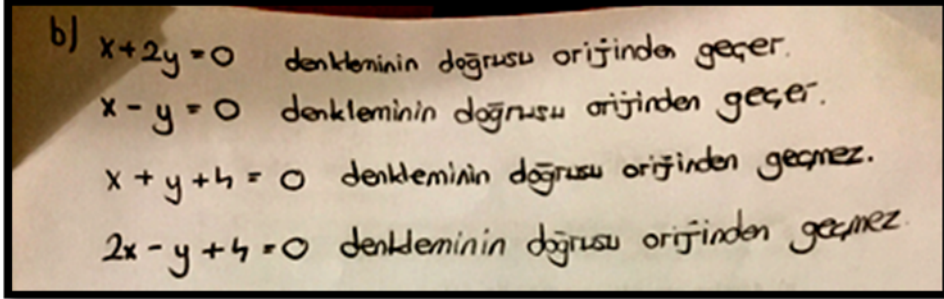 b) x+2y=0 denkleminin doğrusu orijinden geçer.
x-y=0 denkleminin doğrusu orijinden geçer.
x+y+4=0 denkleminin doğrusu orijinden geçmez.
2x-y+4=0 denkleminin doğrusu orijinden geçmez.